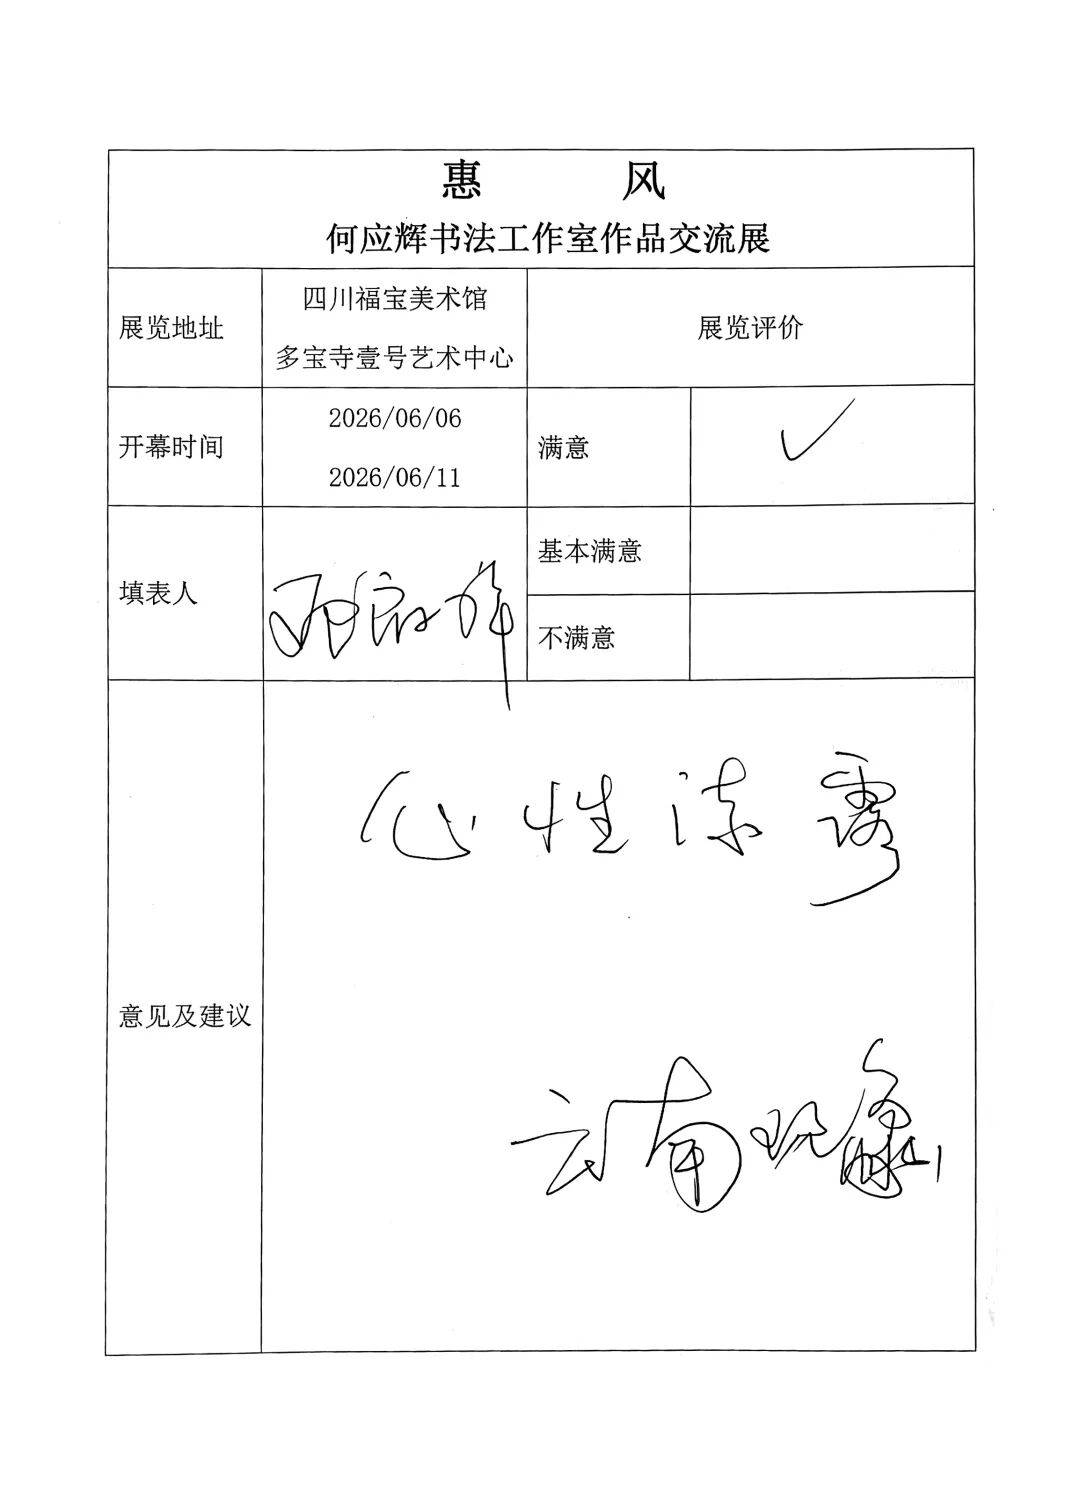 惠 风
何应辉书法工作室作品交流展
展览地址
四川福宝美术馆
多宝寺壹号艺术中心
展览评价
开幕时间
2026/06/06
2026/06/11
满意
✓
填表人
基本满意
不满意
意见及建议
心性流露
云南